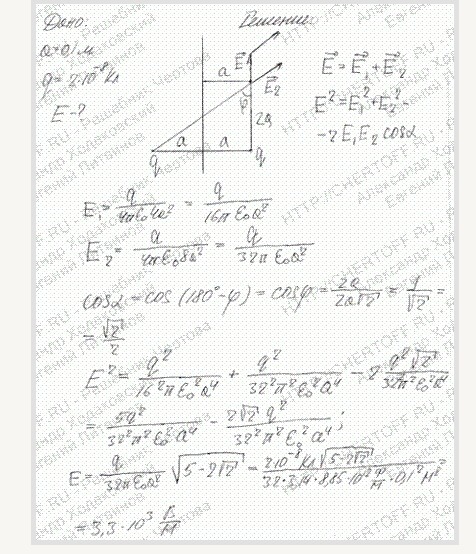 Дано:
Решение:
a=0,1 м
q=2·10⁻⁸ Кл
E-?
E⃗₁
E⃗₂
a
φ
2a
a a
q q
E⃗=E⃗₁+E⃗₂
E²=E₁²+E₂²-
-2E₁E₂cosα
E₁=q/(4πε₀4a²) = q/(16πε₀a²)
E₂=q/(4πε₀8a²) = q/(32πε₀a²)
cosα=cos(180°-φ)=cosφ=2a/(2a√2)=1/√2=
=√2/2
E²=q²/(16²π²ε₀²a⁴) + q²/(32²π²ε₀²a⁴) - 2 q²√2/(32²π²ε₀²a⁴)
=5q²/(32²π²ε₀²a⁴) - 2√2 q²/(32²π²ε₀²a⁴);
E=q/(32πε₀a²) √(5-2√2) = 2·10⁻⁸Кл√(5-2√2)/(32·3,14·8,85·10⁻¹² Ф/м·0,1² м²)=
=3,3·10³ В/м
HTTP://CHERTOFF.RU - Решебник Чертова
Александр Ходаковский
Евгений Питвинов